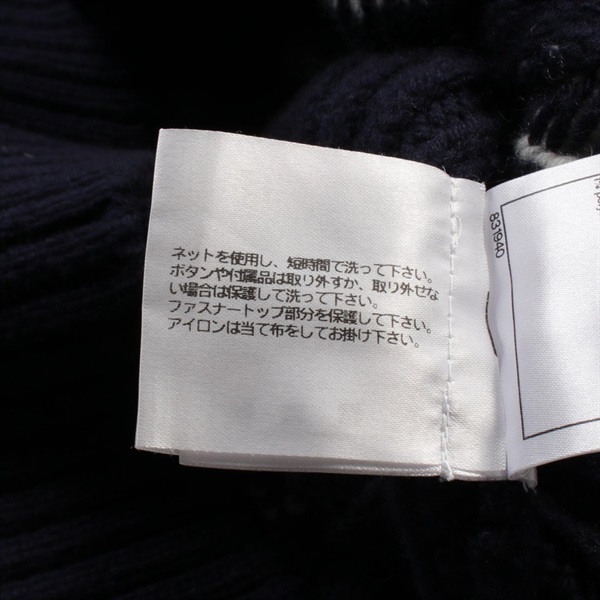 ネットを使用し、短時間で洗って下さい。
ボタンや付属品は取り外すか、取り外せな
い場合は保護して洗って下さい。
ファスナートップ部分を保護して下さい。
アイロンは当て布をしてお掛け下さい。
831940